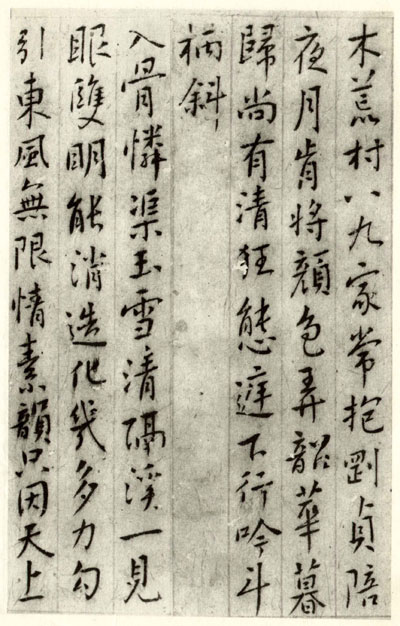 木荒村八九家常抱剛貞陪
夜月肯將顏色弄韶華暮
歸尚有清狂態庭下行吟斗
柄斜
入骨憐渠玉雪清隔溪一見
眼雙明能消造化幾多力勾
引東風無限情素韻只因天上